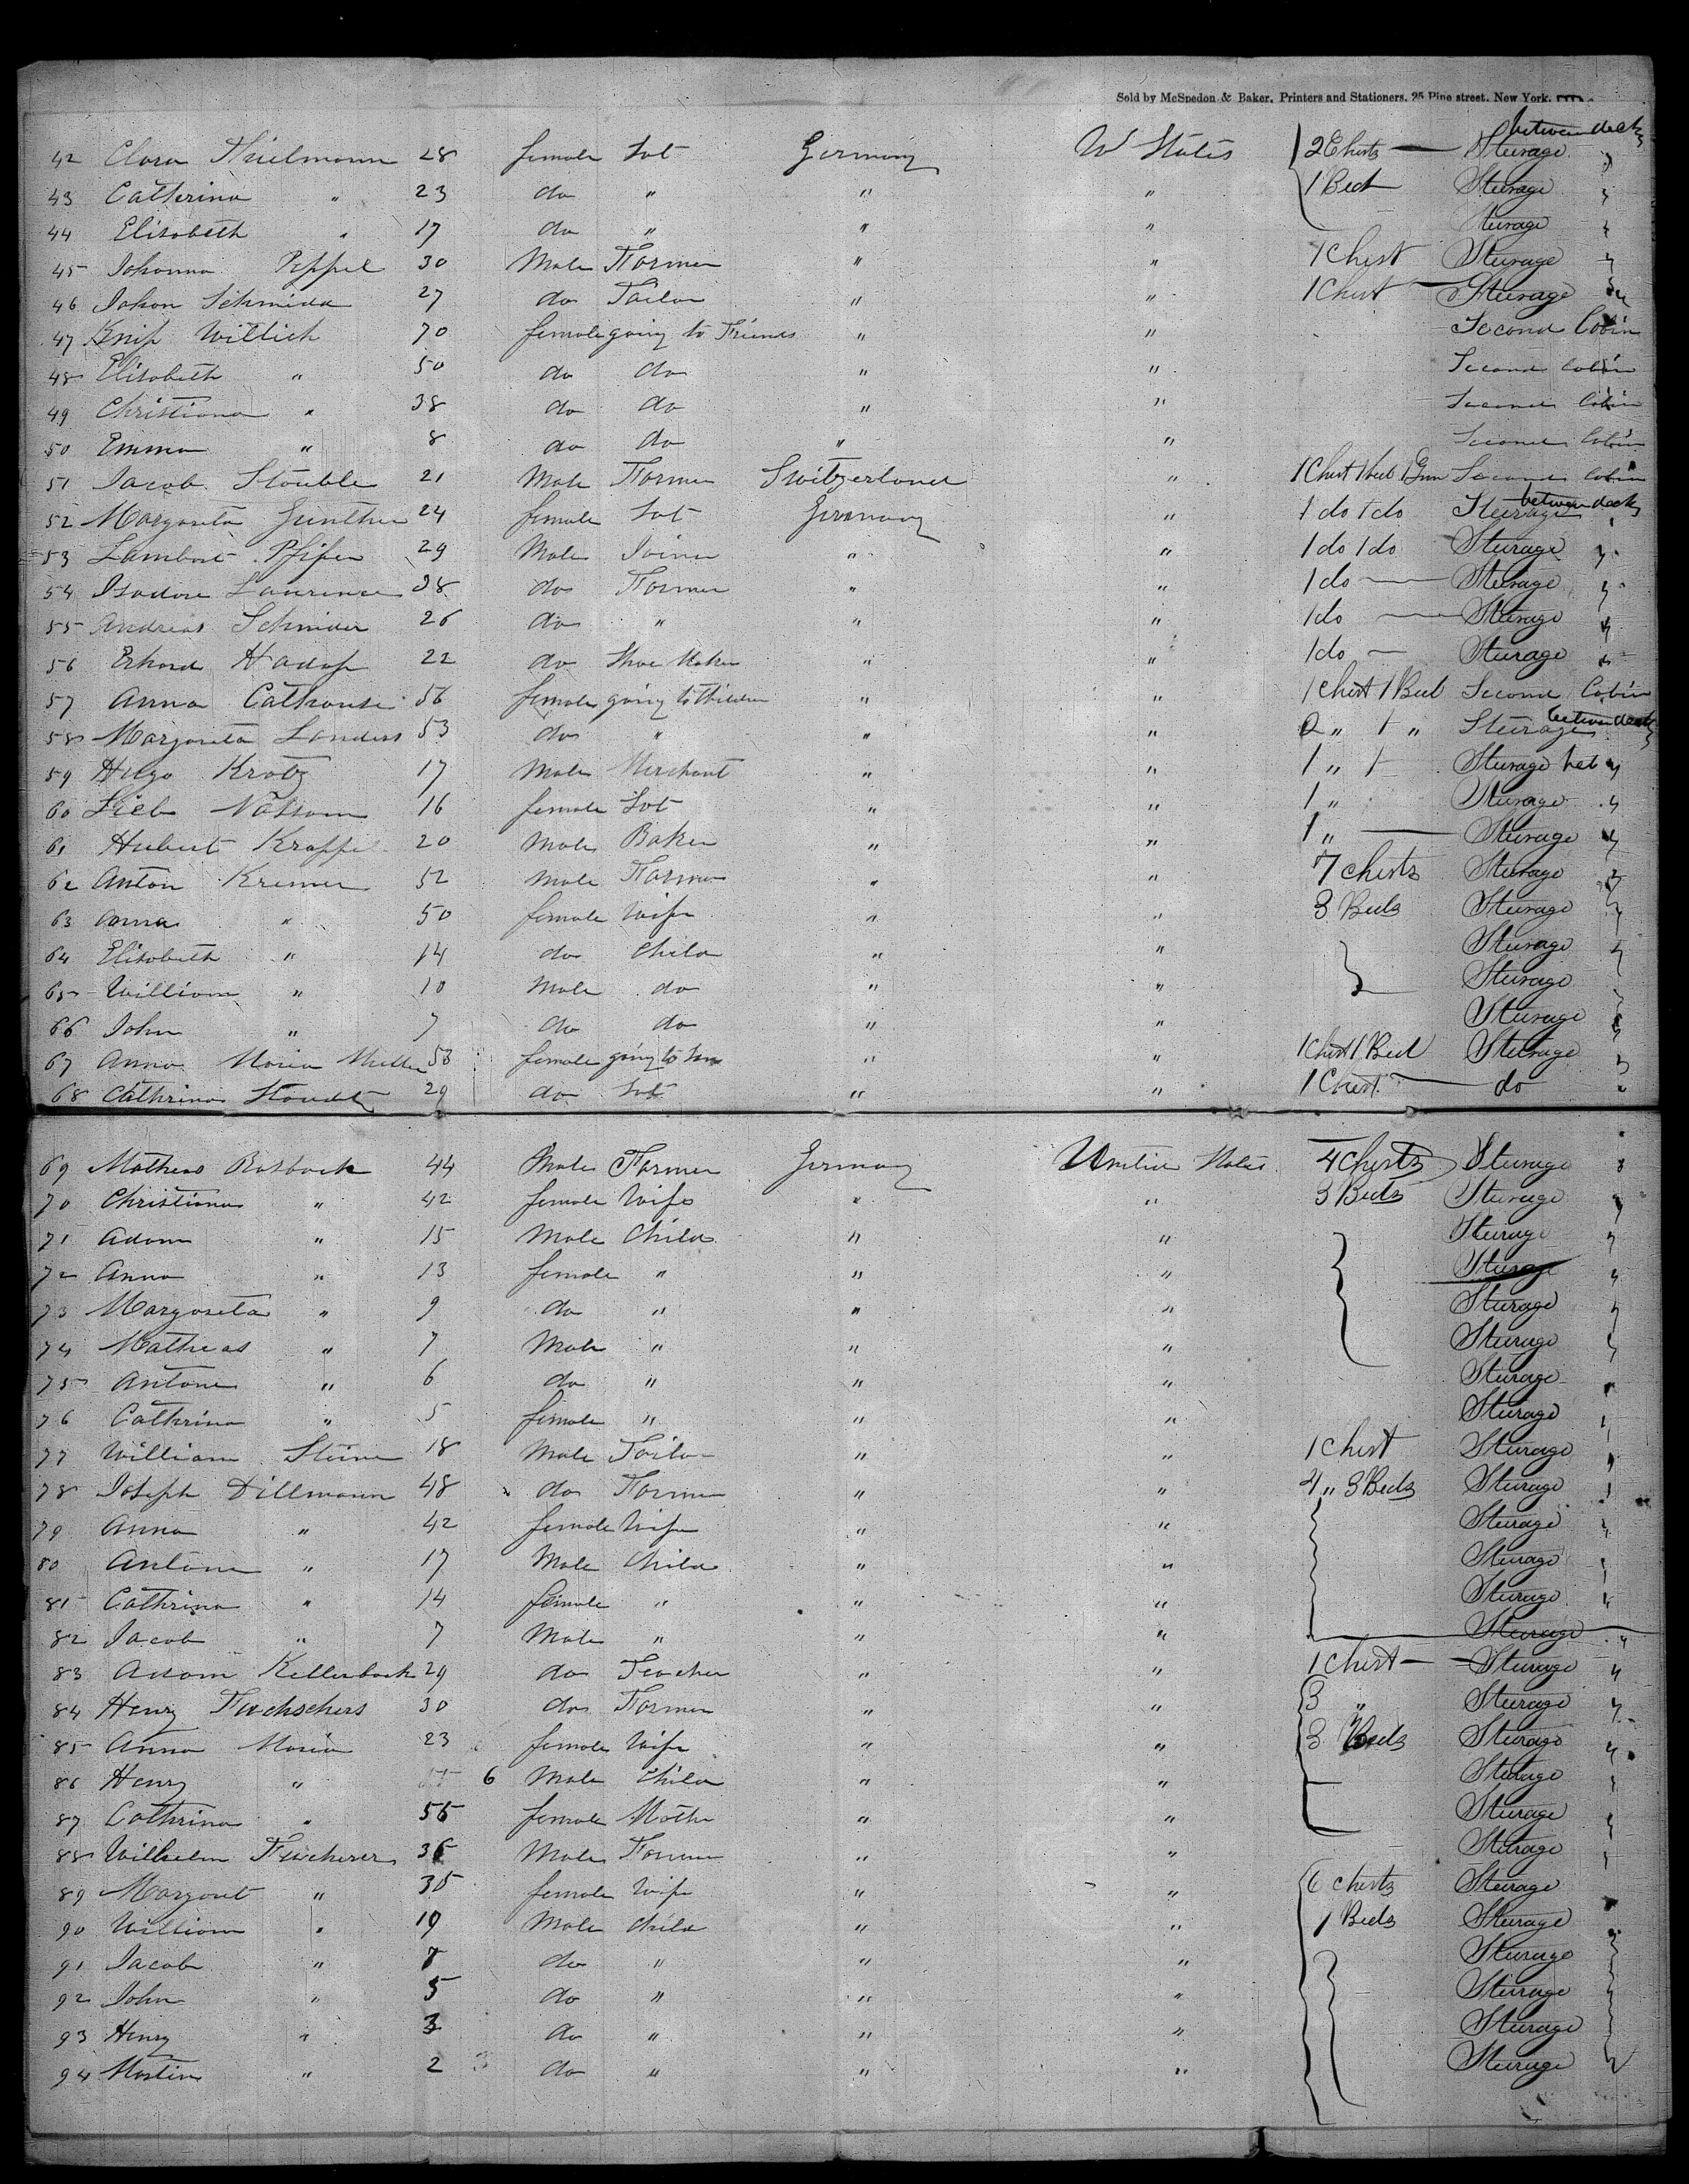 Sold by McSpedon & Baker, Printers and Stationers, 25 Pine street, New York.
between decks
42 Clara Thielmann 28 female Svt Germany U States 2 Chests Sturage "
43 Catherina " 23 do " " " 1 Bed Sturage "
44 Elisabeth " 17 do " " " Sturage "
45 Johanna Peppel 30 Male Farmer " " 1 Chest Sturage "
46 Johan Schmidd 27 do Tailor " " 1 Chest Sturage
47 Willich 70 female going to Friends " " Second Cabin
48 Elisabeth " 50 do do " " Second Cabin
49 Christiana " 38 do do " " Second Cabin
50 Emma " 8 do do " " Second Cabin
51 Jacob Stäuble 21 Male Farmer Switzerland " 1 Chest 1 bed 1 Gun Second Cabin
52 Margareta Gunther 24 female Svt Germany " 1 do 1 do Sturage between decks
53 Lambert Pfifer 29 Male Joiner " " 1 do 1 do Sturage "
54 Isadore Laurence 38 do Farmer " " 1 do Sturage "
55 Andreas Schnider 26 do " " " 1 do Sturage "
56 Erhard 22 do Shoe Maker " " 1 do Sturage "
57 Anna 56 female going to Children " " 1 Chest 1 Bed Second Cabin
58 Margareta Landers 53 do " " " 2 " 1 " Sturage between decks
59 Hugo Kratz 17 Male Merchant " " 1 " 1 Sturage bet "
60 16 female Svt " " 1 " Sturage "
61 Hubert Krappe 20 Male Baker " " 1 " Sturage "
62 Anton Kremer 52 Male Farmer " " 7 Chests Sturage "
63 Anna " 50 female Wife " " 3 Beds Sturage "
64 Elisabeth " 14 do Child " " Sturage "
65 William " 10 Male do " " Sturage
66 John " 7 do do " " Sturage "
67 Anna Maria Muller 53 female going to Son " " 1 Chest 1 Bed Sturage "
68 Cathrina Staudt 29 do Svt " " 1 Chest do "
69 Matheas Rasback 44 Male Farmer Germany United States 4 Chests Sturage "
70 Christiana " 42 female Wife " " 3 Beds Sturage "
71 Adam " 15 Male Child " " Sturage "
72 Anna " 13 female " " " Sturage "
73 Margareta " 9 do " " " Sturage "
74 Matheas " 7 Male " " " Sturage "
75 Antone " 6 do " " " Sturage "
76 Cathrina " 5 female " " " Sturage "
77 William Steine 18 Male Tailor " " 1 Chest Sturage "
78 Joseph Dillmann 48 do Farmer " " 4 " 3 Beds Sturage "
79 Anna " 42 female Wife " " Sturage "
80 Antone " 17 Male Child " " Sturage "
81 Cathrina " 14 female " " " Sturage "
82 Jacob " 7 Male " " " Sturage "
83 Adam Kellerback 29 do Teacher " " 1 Chest Sturage "
84 Henry Fuchschers 30 do Farmer " " 3 " Sturage "
85 Anna Maria 23 female Wife " " 3 Beds Sturage "
86 Henry " 6 Male Child " " Sturage "
87 Cathrina " 56 female Mother " " Sturage "
88 Wilhelm Fuscherers 36 Male Farmer " " Sturage "
89 Margaret " 35 female Wife " " 6 Chests Sturage
90 William " 10 Male Child " " 1 Beds Sturage "
91 Jacob " 7 do " " " Sturage "
92 John " 5 do " " " Sturage "
93 Henry " 3 do " " " Sturage "
94 Martin " 2 do " " " Sturage "